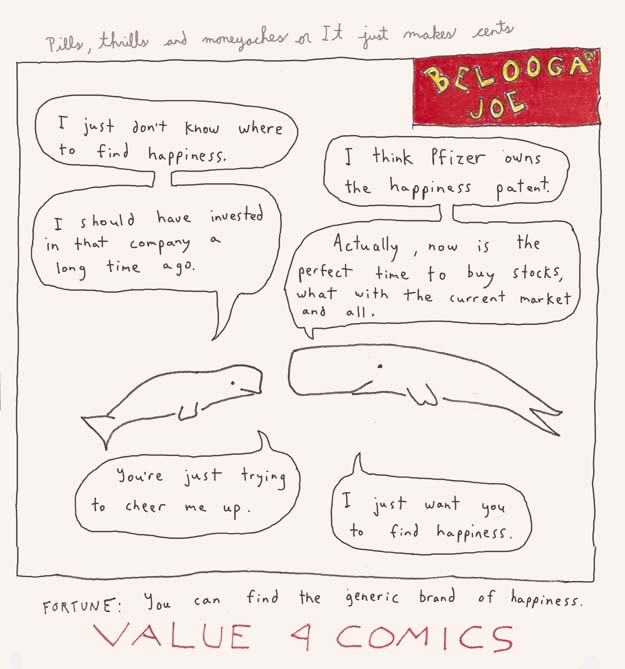 Pills, thrills and moneyaches or It just makes cents
BELOOGA®
JOE
I just don't know where
to find happiness.
I think Pfizer owns
the happiness patent.
I should have invested
in that company a
long time ago.
Actually, now is the
perfect time to buy stocks,
what with the current market
and all.
You're just trying
to cheer me up.
I just want you
to find happiness.
FORTUNE: You can find the generic brand of happiness.
VALUE 4 COMICS